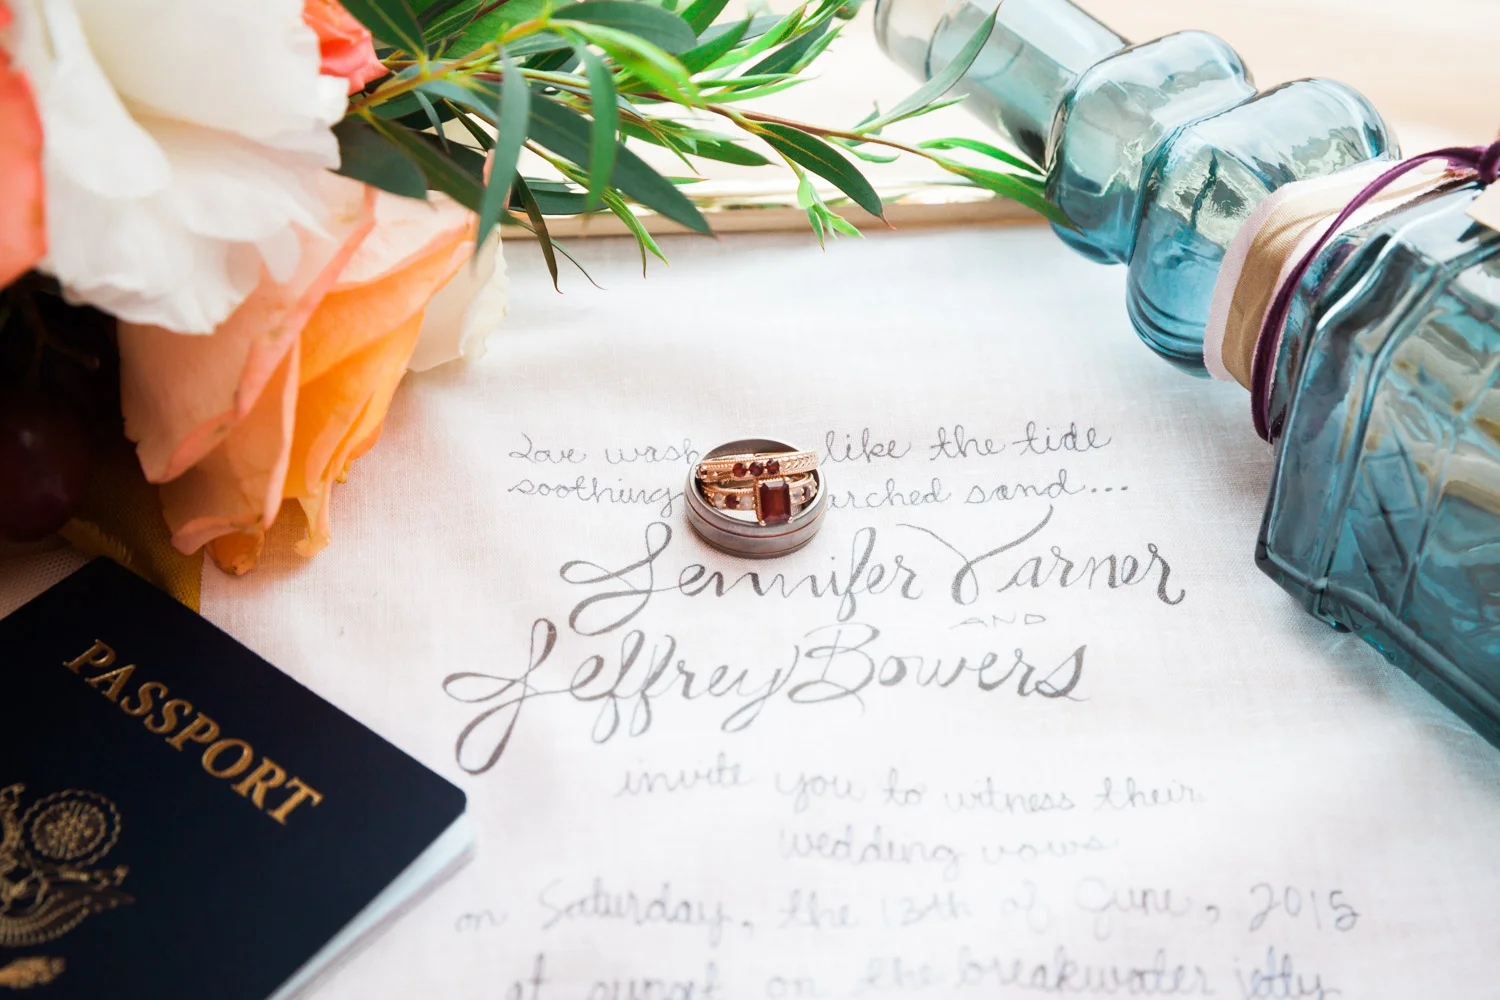 Love wash like the tide
soothing arched sand...
Jennifer Varner
AND
Jeffrey Bowers
invite you to witness their
wedding vows
on Saturday, the 13th of June, 2015
at sunset on the breakwater jetty
PASSPORT